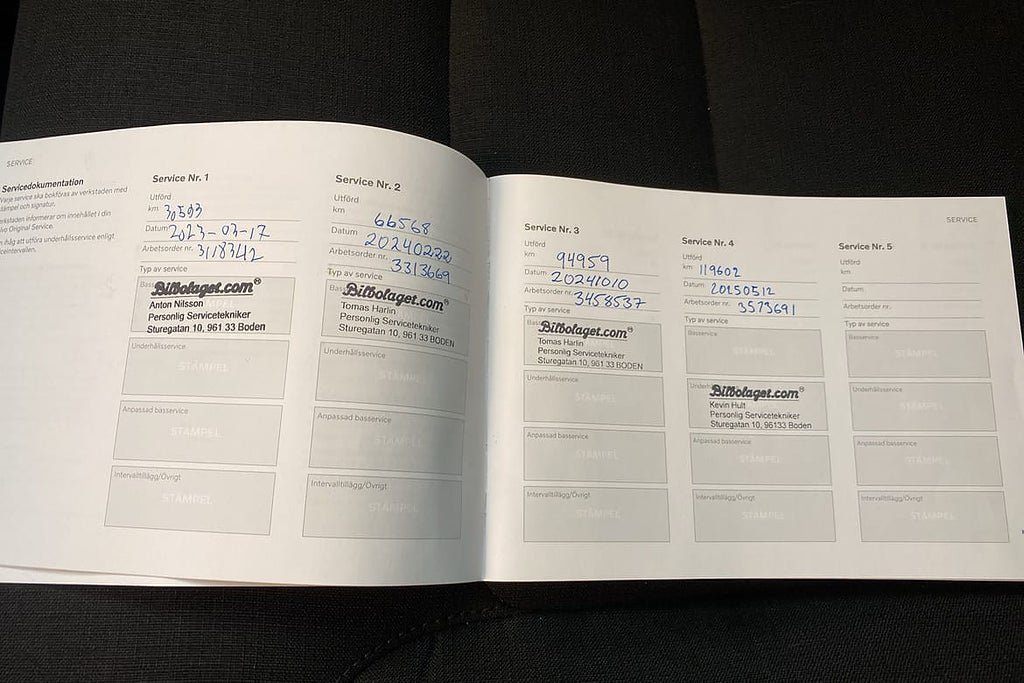 SERVICE
Servicedokumentation
Varje service ska bokföras av verkstaden med
stämpel och signatur.
rkstaden informerar om innehållet i din
lvo Original Service.
m ihåg att utföra underhållsservice enligt
iceintervallen.
Service Nr. 1
Utförd
km 30503
Datum 2023-03-17
Arbetsorder nr. 3118342
Typ av service
Bilbolaget.com®
Anton Nilsson
Personlig Servicetekniker
Sturegatan 10, 961 33 Boden
Underhållsservice
STÄMPEL
Anpassad basservice
STÄMPEL
Intervalltillägg/Övrigt
STÄMPEL
Service Nr. 2
Utförd
km 66568
Datum 20240222
Arbetsorder nr. 3313669
Typ av service
Bilbolaget.com®
Tomas Harlin
Personlig Servicetekniker
Sturegatan 10, 961 33 BODEN
Underhållsservice
STÄMPEL
Anpassad basservice
STÄMPEL
Intervalltillägg/Övrigt
STÄMPEL
SERVICE
Service Nr. 3
Utförd
km 94959
Datum 20241010
Arbetsorder nr. 3458537
Typ av service
Bilbolaget.com®
Tomas Harlin
Personlig Servicetekniker
Sturegatan 10, 961 33 BODEN
Underhållsservice
STÄMPEL
Anpassad basservice
STÄMPEL
Intervalltillägg/Övrigt
STÄMPEL
Service Nr. 4
Utförd
km 119602
Datum 20250512
Arbetsorder nr. 3573691
Typ av service
Basservice
STÄMPEL
Bilbolaget.com®
Kevin Hult
Personlig Servicetekniker
Sturegatan 10, 96133 Boden
Anpassad basservice
STÄMPEL
Intervalltillägg/Övrigt
STÄMPEL
Service Nr. 5
Utförd
km
Datum
Arbetsorder nr.
Typ av service
Basservice
STÄMPEL
Underhållsservice
STÄMPEL
Anpassad basservice
STÄMPEL
Intervalltillägg/Övrigt
STÄMPEL